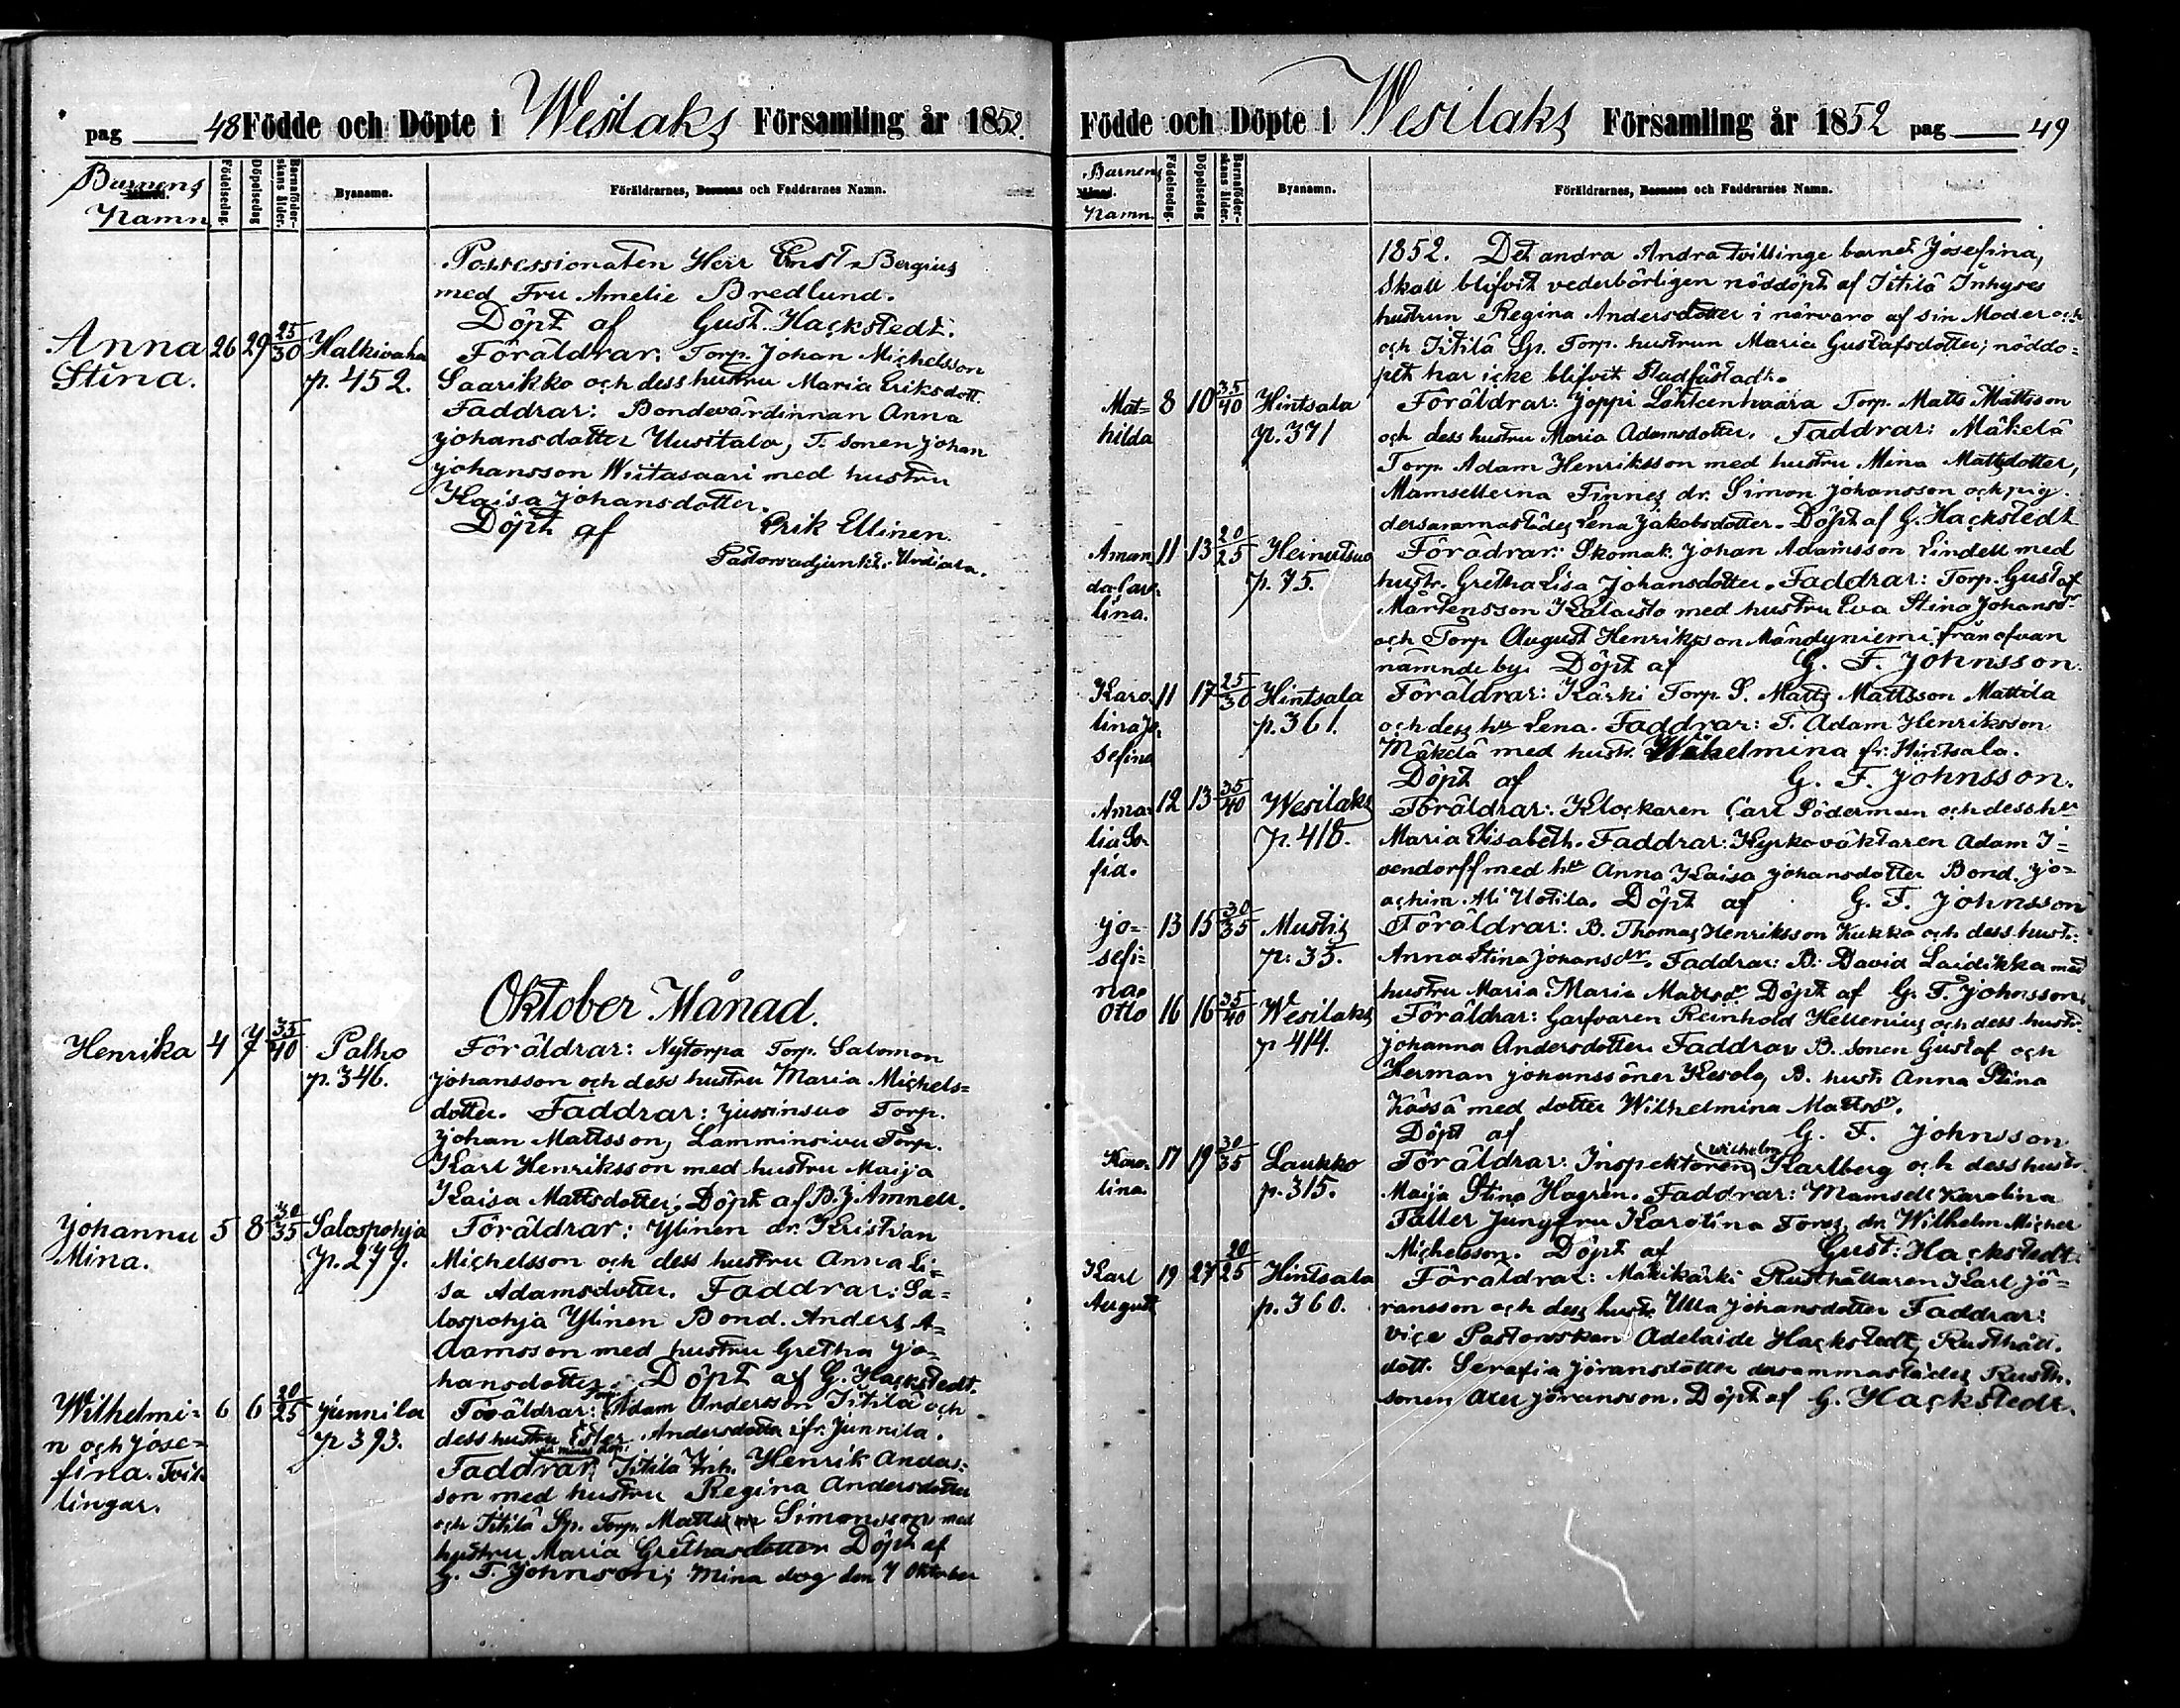 pag 48 Födde och Döpte i Wesilaks Församling år 1852.
Barnens Namn
Födelsedag.
Döpelsedag
Barnaföderskans ålder.
Byanamn.
Föräldrarnes, Barnens och Faddrarnes Namn.
Possessionaten Herr Ernst Bergius
med Fru Amelie Bredlund.
Döpt af Gust. Hackstedt.
Anna 26 29 25/30 Halkivaha Föräldrar: Torp. Johan Michelsson
Stina. p. 452. Saarikko och dess hustru Maria Eriksdott.
Faddrar: Bondevärdinnan Anna
Johansdotter Uusitalo, T. sonen Johan
Johansson Wiitasaari med hustru
Kaisa Johansdotter.
Döpt af Erik Ellinen.
Pastorsadjunkt i Urdiala.
Oktober Månad.
Henrika 4 7 35/40 Palho Föräldrar: Nytorpa Torp. Salomon
p. 346. Johansson och dess hustru Maria Michels=
dotter. Faddrar: Jussinsuo Torp.
Johan Mattsson, Lamminsivu Torp.
Karl Henriksson med hustru Maija
Kaisa Mattsdotter. Döpt af B. J. Amnell.
Johanna 5 8 30/35 Salospohja Föräldrar: Ylinen dr. Kristian
Mina. p. 279. Michelsson och dess hustru Anna Li=
sa Adamsdotter. Faddrar: Sa=
lospohja Ylinen Bond. Anders A=
damsson med hustru Gretha Jo=
hansdotter. Döpt af G. Hackstedt.
Wilhelmi= 6 6 20/25 Junnila Föräldrar: Torp. Adam Andersson Titilä och
n och Jose= p 393. dess hustru Ester Andersdotter ifr. Junnila.
fina. Tvil= Faddrar: vid minas dop: Titilä Inh. Henrik Anders=
lingar. son med hustru Regina Andersdotter
och Titilä Sp. Torp. Matts Simonsson med
hustru Maria Grethasdotter Döpt af
G. F. Johnson; Mina dog den 7 Oktober
Födde och Döpte i Wesilaks Församling år 1852 pag 49
Barnens Namn.
Födelsedag.
Döpelsedag
Barnaföderskans ålder.
Byanamn.
Föräldrarnes, Barnens och Faddrarnes Namn.
1852. Det andra Andra tvillinge barnet Josefina,
Skall blifvit vederbörligen nöddöpt af Titilä Inhyses
hustrun Regina Andersdotter i närvaro af sin Moder och
och Titilä Sp. Torp. hustrun Maria Gustafsdotter; nöddo=
pet har icke blifvit stadfästadt.
Mat= 8 10 35/40 Hintsala Föräldrar: Joppi Lähteenvaara Torp. Matts Mattsson
hilda p. 371 och dess hustru Maria Adamsdotter. Faddrar: Mäkelä
Torp. Adam Henriksson med hustru Mina Mattsdotter,
Mamsellerna Finnes dr. Simon Johansson och pig.
dersammastädes Lena Jakobsdotter. Döpt af G. Hackstedt
Aman= 11 13 20/25 Heinutsuo Förädrar: Skomak. Johan Adamsson Lindell med
da Caro= p. 75. hustr. Gretha Lisa Johansdotter. Faddrar: Torp. Gustaf
lina. Mårtensson Kataisto med hustru Eva Stina Johansdr
och Torp August Henriksson Mändyniemi från ofvan
nämnde by. Döpt af G. F. Johnsson.
Karo= 11 17 25/30 Hintsala Föräldrar: Kärki Torp. S. Matts Mattsson Mattila
lina Jo= p. 361. och dess hu Lena. Faddrar: T. Adam Henriksson
sefina Mäkelä med hustr. Wilhelmina fr. Hintsala.
Döpt af G. F. Johnsson.
Ama= 12 13 35/40 Wesilaks Föräldrar: Klockaren Carl Söderman och dess hu
lia So= p. 418. Maria Elisabeth. Faddrar: Kyrkoväktaren Adam I=
fia. sendorff med hu Anna Kaisa Johansdotter Bond. Jo=
achim Ali Uotila. Döpt af G. F. Johnsson
Jo= 13 15 30/35 Mustis Föräldrar: B. Thomas Henriksson Kukko och dess hust:
sefi= p. 35. Anna Stina Johansdr. Faddrar: B. David Laidikka med
na. hustru Maria Maria Mattsdr Döpt af G. F. Johnsson.
Otto 16 16 35/40 Wesilaks Föräldrar: Garfvaren Reinhold Hellenius och dess hustr.
p 414. Johanna Andersdotter. Faddrar B. sonen Gustaf och
Herman Johanssöner Kesola, B. hustr. Anna Stina
Kässä med dotter Wilhelmina Mattsdr.
Döpt af G. F. Johnsson
Karo= 17 19 30/35 Laukko Föräldrar: Inspektoren Wilhelm Karlberg och dess hustr.
lina. p. 315. Maija Stina Hagrén. Faddrar: Mamsell Karolina
Taller Jungfru Karolina Forss, dr. Wilhelm Michel
Michelsson. Döpt af Gust: Hackstedt.
Karl 19 27 20/25 Hintsala Föräldrar: Mäkikärki Rusthållaren Karl Jö=
August p. 360. ransson och dess hustr. Ulla Johansdotter Faddrar:
vice Pastorskan Adelaide Hackstedt, Rusthåll.
dott. Serafia Jöransdotter dersammastädes Rusth.
sonen Axel Jöransson. Döpt af G. Hackstedt.